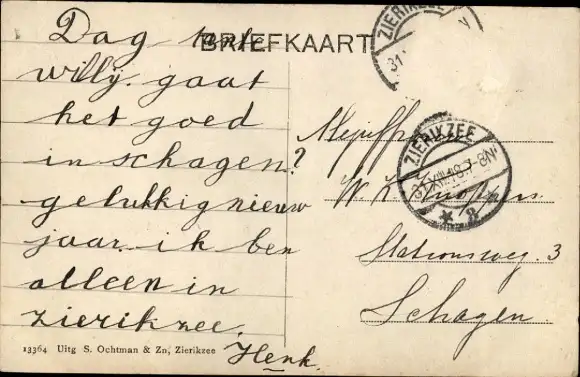 BRIEFKAART
ZIERIKZEE
31
Dag tante
willy. gaat
het goed
in schagen?
gelukkig nieuw
jaar. ik ben
alleen in
zierikzee.
Henk.
Mejuffr.
ZIERIKZEE
31.XII.18.7-8N
2
W. K.
Stationsweg. 3
Schagen.
13364 Uitg S. Ochtman & Zn, Zierikzee